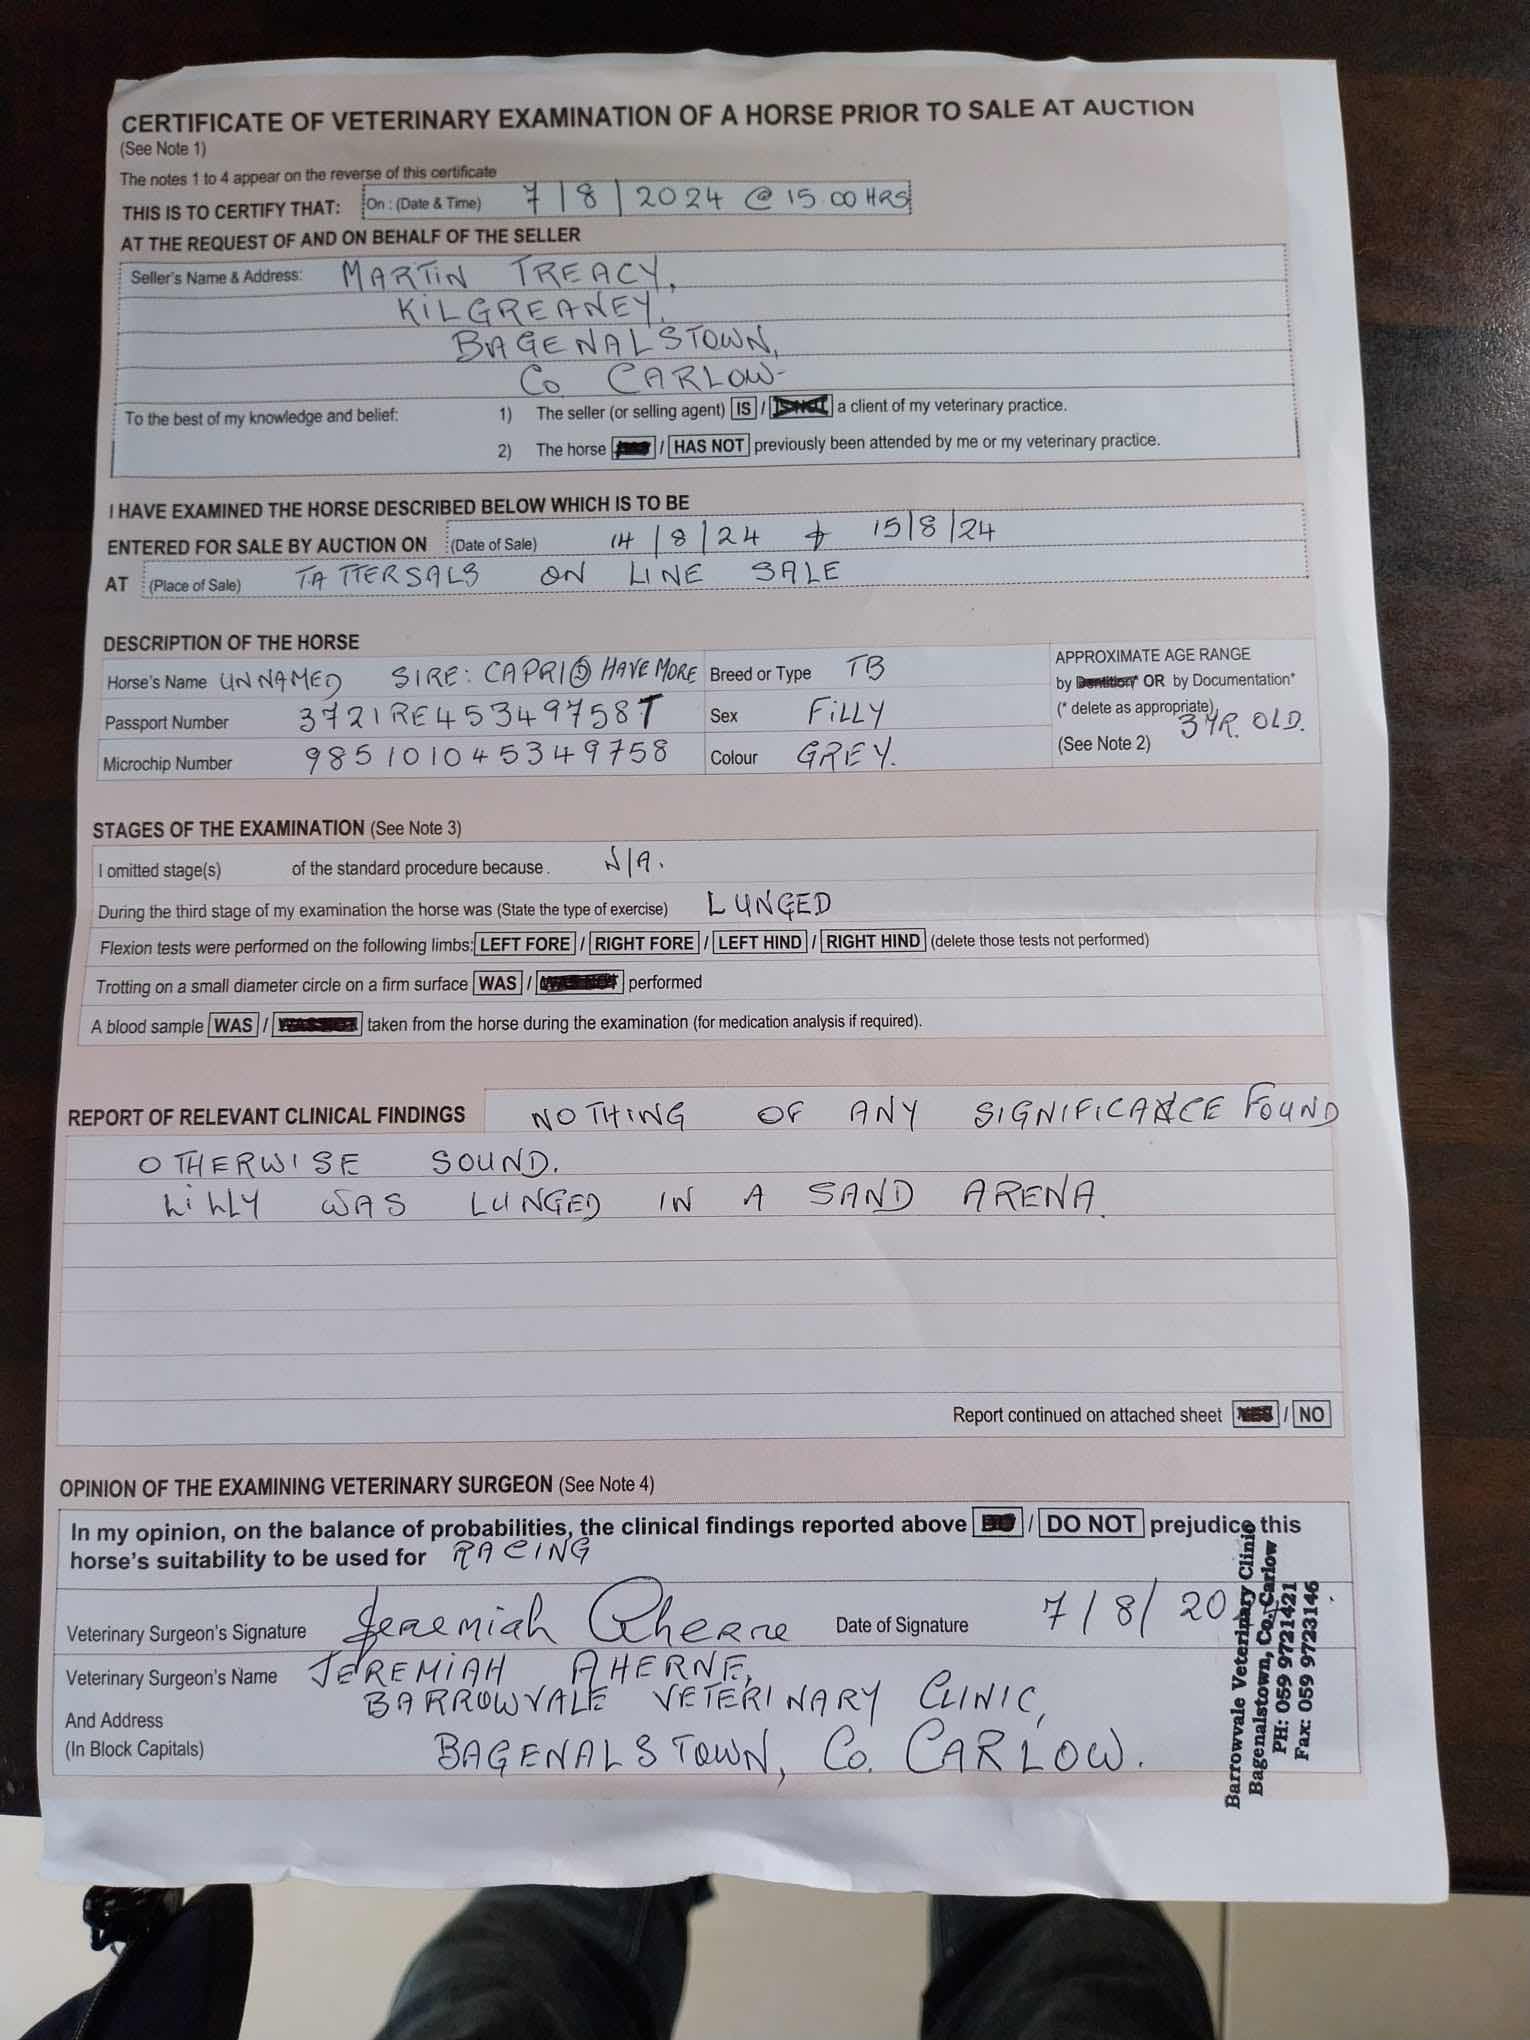 CERTIFICATE OF VETERINARY EXAMINATION OF A HORSE PRIOR TO SALE AT AUCTION
(See Note 1)
The notes 1 to 4 appear on the reverse of this certificate
THIS IS TO CERTIFY THAT: On : (Date & Time) 7/8/2024 @ 15.00 HRS
AT THE REQUEST OF AND ON BEHALF OF THE SELLER
Seller's Name & Address: MARTIN TREACY,
KILGREANEY,
BAGENALSTOWN,
Co CARLOW-
To the best of my knowledge and belief: 1) The seller (or selling agent) IS / IS NOT a client of my veterinary practice.
2) The horse / HAS NOT previously been attended by me or my veterinary practice.
I HAVE EXAMINED THE HORSE DESCRIBED BELOW WHICH IS TO BE
ENTERED FOR SALE BY AUCTION ON (Date of Sale) 14/8/24 & 15/8/24
AT (Place of Sale) TATTERSALS ON LINE SALE
DESCRIPTION OF THE HORSE
Horse's Name UNNAMED SIRE: CAPRI HAVE MORE Breed or Type TB
Passport Number 372IRE45349758T Sex FILLY
Microchip Number 985101045349758 Colour GREY.
APPROXIMATE AGE RANGE
by Dentition* OR by Documentation*
(* delete as appropriate)
(See Note 2) 3 YR. OLD.
STAGES OF THE EXAMINATION (See Note 3)
I omitted stage(s) of the standard procedure because . N/A.
During the third stage of my examination the horse was (State the type of exercise) LUNGED
Flexion tests were performed on the following limbs: LEFT FORE / RIGHT FORE / LEFT HIND / RIGHT HIND (delete those tests not performed)
Trotting on a small diameter circle on a firm surface WAS / WAS NOT performed
A blood sample WAS / WAS NOT taken from the horse during the examination (for medication analysis if required).
REPORT OF RELEVANT CLINICAL FINDINGS NOTHING OF ANY SIGNIFICANCE FOUND
OTHERWISE SOUND.
WAS LUNGED IN A SAND ARENA.
Report continued on attached sheet YES / NO
OPINION OF THE EXAMINING VETERINARY SURGEON (See Note 4)
In my opinion, on the balance of probabilities, the clinical findings reported above / DO NOT prejudice this
horse's suitability to be used for RACING
Veterinary Surgeon's Signature Jeremiah Aherne Date of Signature 7/8/20
Veterinary Surgeon's Name JEREMIAH AHERNE,
And Address BARROWVALE VETERINARY CLINIC,
(In Block Capitals) BAGENALSTOWN, Co. CARLOW.
Barrowvale Veterinary Clinic
Bagenalstown, Co. Carlow
PH: 059 9721421
Fax: 059 9723146